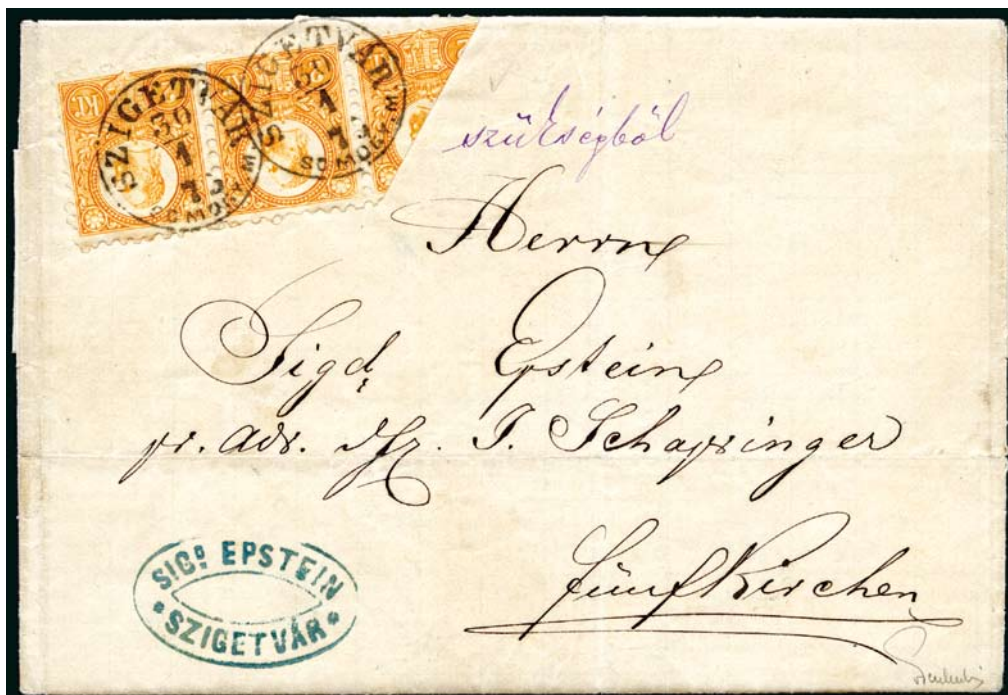 SZIGETVÁR
30
1
73
SOMOGY M
SZIGETVÁR
30
1
73
SOMOGY M
KR
szükségből
Herrn
Sigd. Epstein
pr. adr. J. Schapringer
Fünfkirchen
SIGD EPSTEIN
SZIGETVÁR